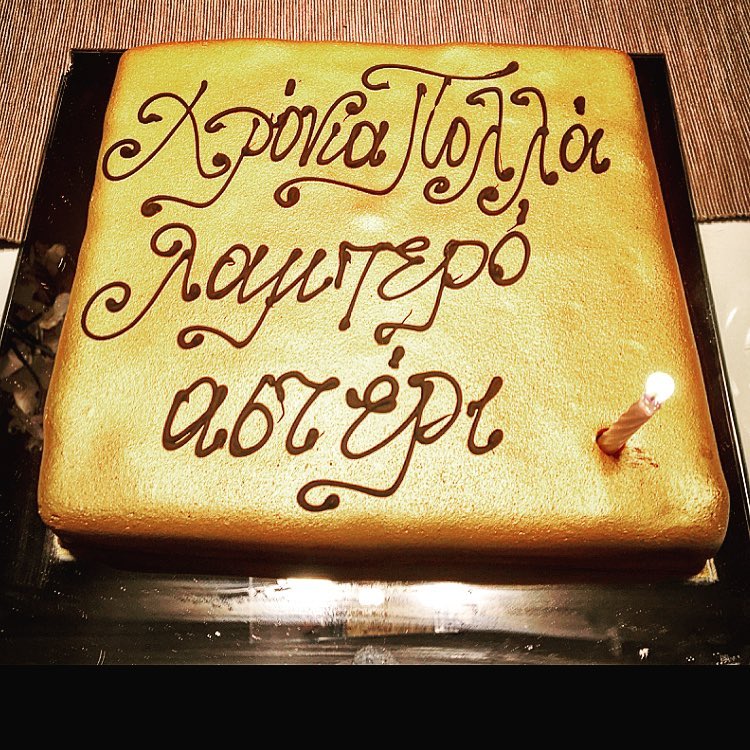 Χρόνια Πολλά
λαμπερό
αστέρι